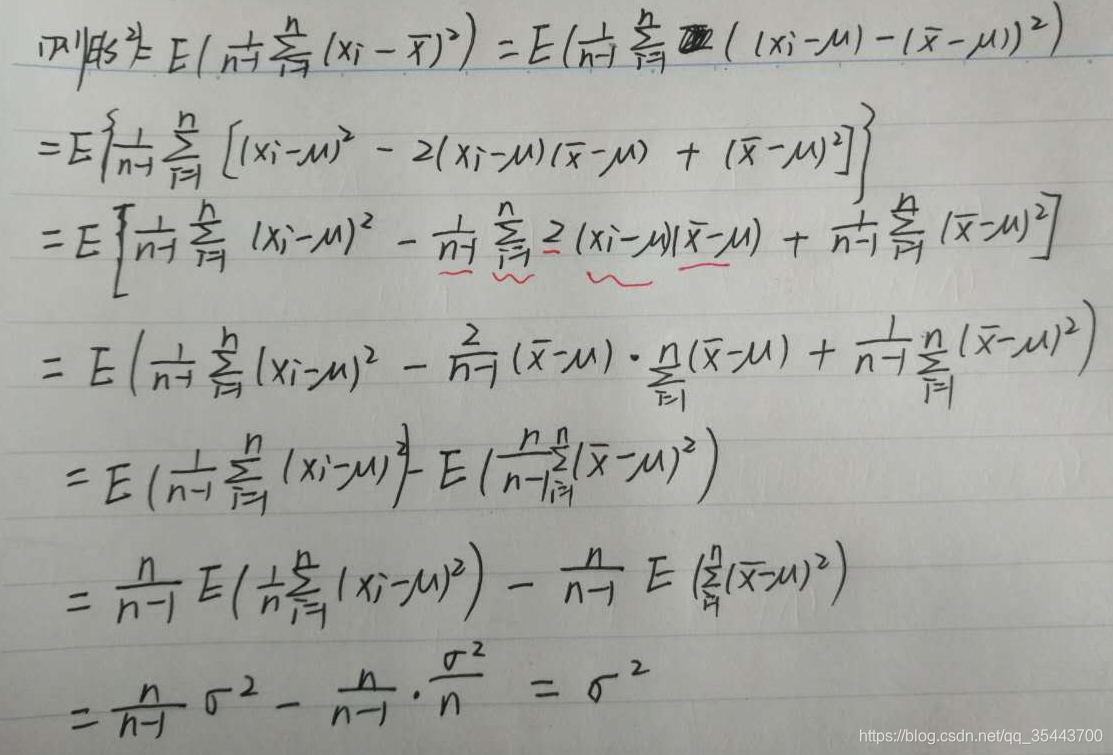 则E(s²)= E(1/(n-1) Σ_{i=1}^{n} (xi - x̄)²) = E(1/(n-1) Σ_{i=1}^{n} ((xi-μ)-(x̄-μ))²)
= E{1/(n-1) Σ_{i=1}^{n} [(xi-μ)² - 2(xi-μ)(x̄-μ) + (x̄-μ)²]}
= E[1/(n-1) Σ_{i=1}^{n} (xi-μ)² - 1/(n-1) Σ_{i=1}^{n} 2(xi-μ)(x̄-μ) + 1/(n-1) Σ_{i=1}^{n} (x̄-μ)²]
= E(1/(n-1) Σ_{i=1}^{n} (xi-μ)² - 2/(n-1) (x̄-μ)·Σ_{i=1}^{n} (x̄-μ) + 1/(n-1) Σ_{i=1}^{n} (x̄-μ)²)
= E(1/(n-1) Σ_{i=1}^{n} (xi-μ)²) - E(n/(n-1) Σ_{i=1}^{n} (x̄-μ)²)
= n/(n-1) E(1/n Σ_{i=1}^{n} (xi-μ)²) - n/(n-1) E(Σ_{i=1}^{n} (x̄-μ)²)
= n/(n-1) σ² - n/(n-1) · σ²/n = σ²
https://blog.csdn.net/qq_35443700